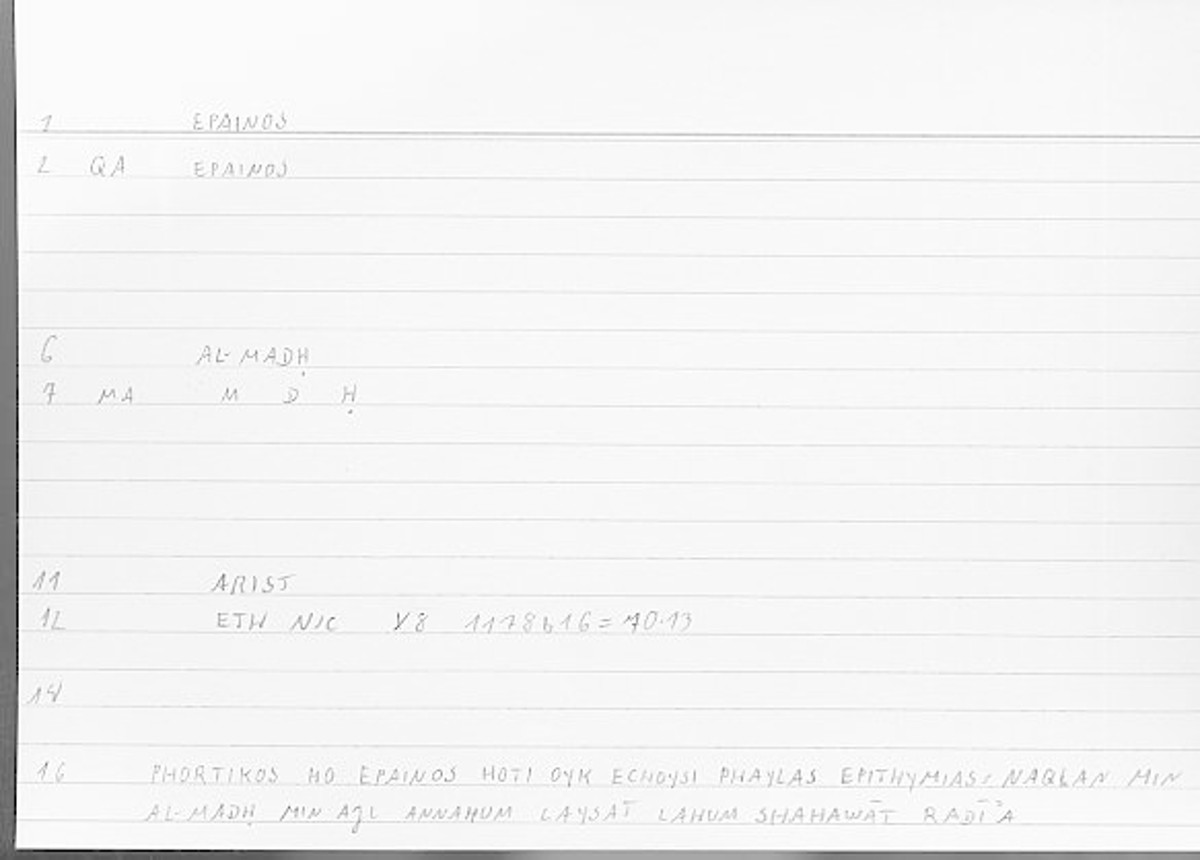 1 EPAINOS
2 QA EPAINOS
6 AL-MADḤ
7 MA M D Ḥ
11 ARIST
12 ETH NIC X8 1178b16= 70.13
14
16 PHORTIKOS HO EPAINOS HOTI OYK ECHOYSI PHAYLAS EPITHYMIAS: MIN
AL-MADḤ MIN AǦL ANNAHUM LAYSAT LAHUM SHAHAWĀT RADĪʾA